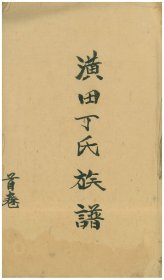 潢田丁氏族譜
首卷